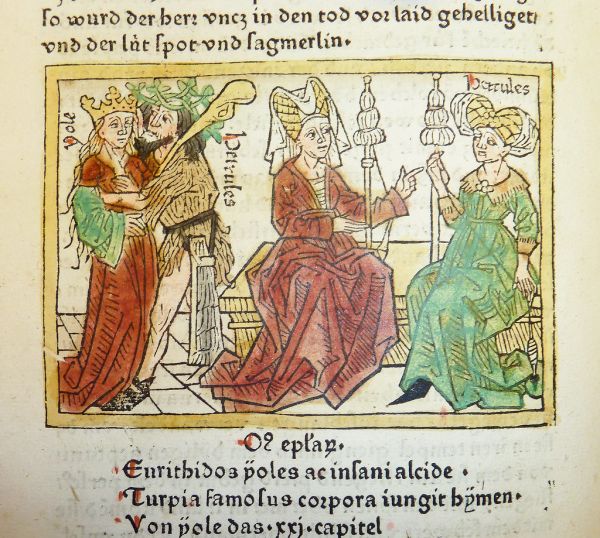 so wurd der herr vncz in den tod vor laid gehelliget
vnd der lüt spot vnd sagmerlin.
yole
hercules
hercules
Eurithidos ÿoles ac insani alcide.
Turpia famosus corpora iungit hÿmen.
Von ÿole das .xxj. capitel